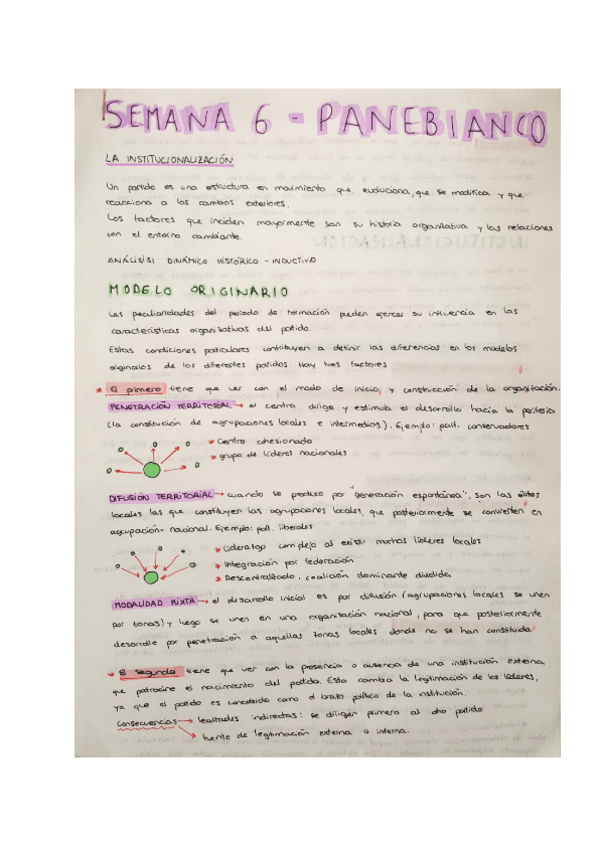 SEMANA 6 - PANEBIANCO
LA INSTITUCIONALIZACIÓN
Un partido es una estructura en movimiento que evoluciona, que se modifica y que
reacciona a los cambios exteriores.
Los factores que inciden mayormente son su historia organitativa y las relaciones
con el entorno cambiante.
ANÁLISISI DINÁMICO HISTÓRICO - INDUCTIVO
MODELO ORIGINARIO
Las peculiaridades del periodo de formación pueden ejercer su influencia en las
características organitativas del partido.
Estas condiciones particulares contribuyen a definir las diferencias en los modelos
originales de los diferentes partidos Hay tres factores
* El primero tiene que ver con el modo de inicio y construcción de la organitación.
PENETRACIÓN TERRITORIAL → el centro dirige y estimula el desarrollo hacia la periferia
(la constitución de agrupaciones locales e intermedios). Ejemplo: part. conservadores
→ Centro cohesionado
→ grupo de líderes nacionales
DIFUSIÓN TERRITORIAL → cuando se produce por "generación espontánea", son las élites
locales las que constituyen las agrupaciones locales, que posteriormente se convierten en
agrupación nacional. Ejemplo: part. liberales
→ Lideratgo complejo al existir muchos líderes locales
→ Integración por federación
→ Descentralitado, coalición dominante dividida
MODALIDAD MIXTA → el desarrollo inicial es por difusión (agrupaciones locales se unen
por tonas) y luego se unen en una organitación nacional, para que posteriormente
desarrolle por penetración a aquellas tonas locales donde no se han constituida.
→ El segundo tiene que ver con la presencia o ausencia de una institución externa
que patrocine el nacimiento del partido. Esto cambia la legitimación de los líderes,
ya que el partido es concebido como el brato político de la institución.
Consecuencias → lealtades indirectas: se dirigen primero al otro partido
→ fuente de legitimación externa o interna.